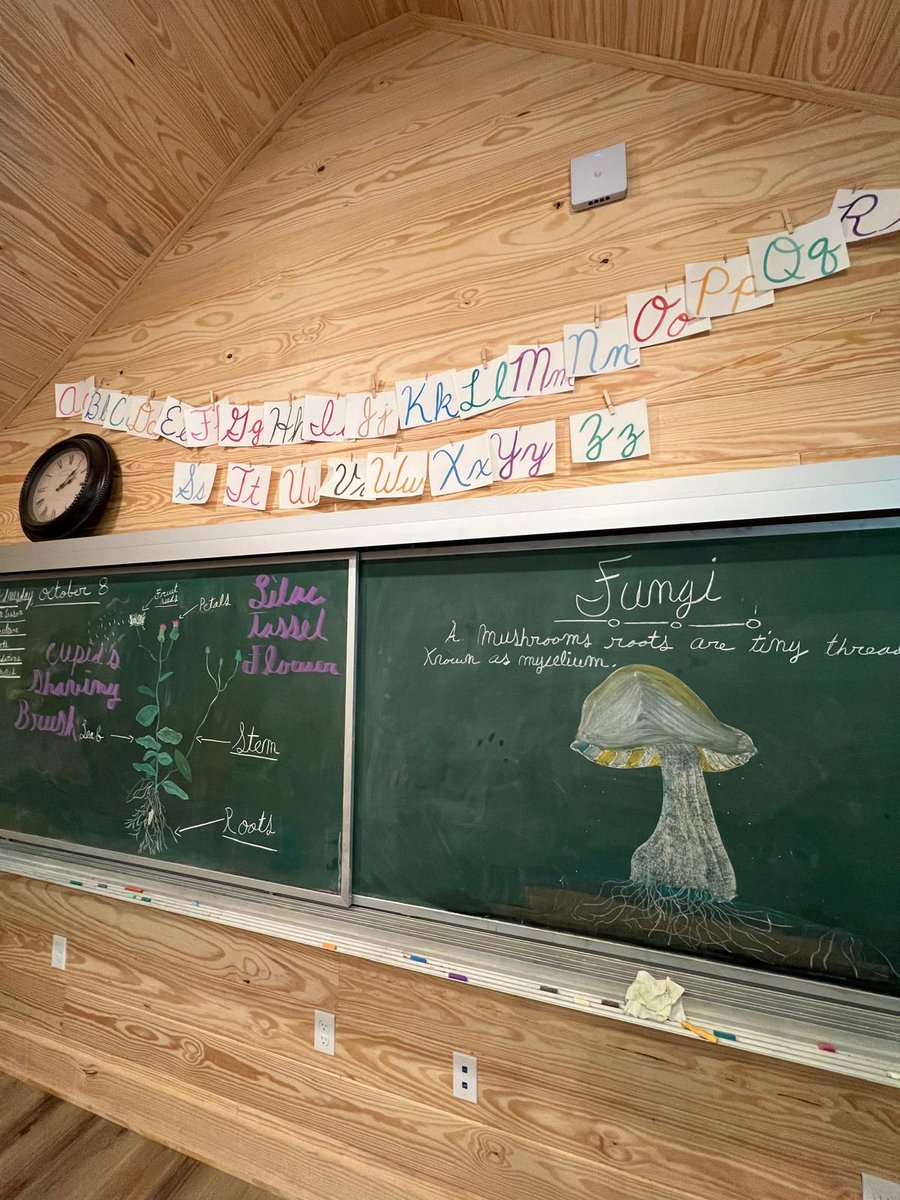 A
Bb
C
D
Ee
Ff
Gg
Hh
Ii
Jj
Kk
Ll
Mm
Nn
Oo
Pp
Qq
R
Ss
Tt
Uu
Vv
Ww
Xx
Yy
Zz
October 8
Fruit
seeds
Petals
Lilac
Tassel
Flower
Cupid's
Shaving
Brush
Leaf
Stem
Roots
Fungi
A mushrooms roots are tiny
Known as myselium.